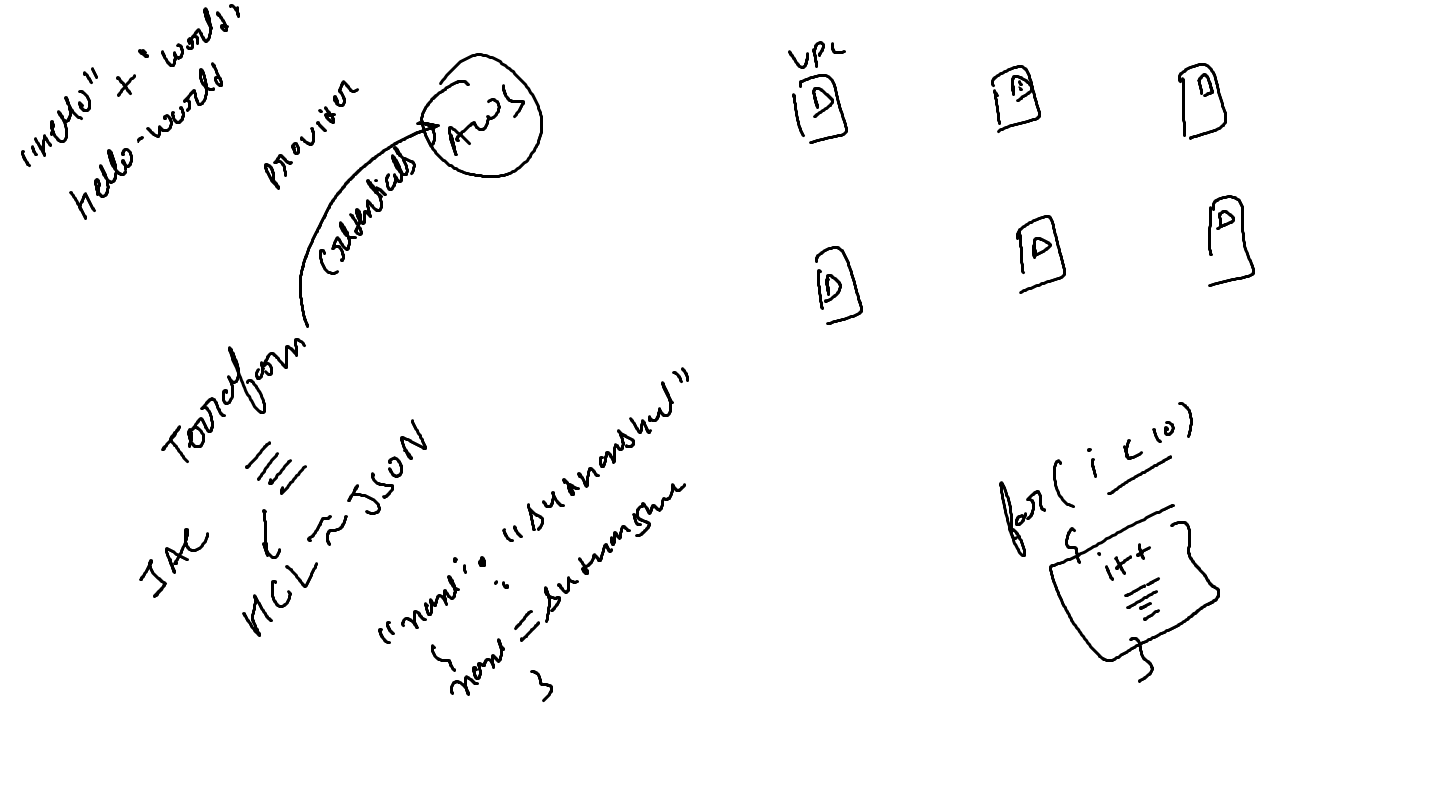 "Hello" + "world"
hello-world
PROVIDER
AWS
Credentials
Terraform
IAC
HCL ≈ JSON
"name": "sudhanshu"
{
name = sudhanshu
}
VPC
D
D
D
D
D
for( i < 10)
{
i++
}